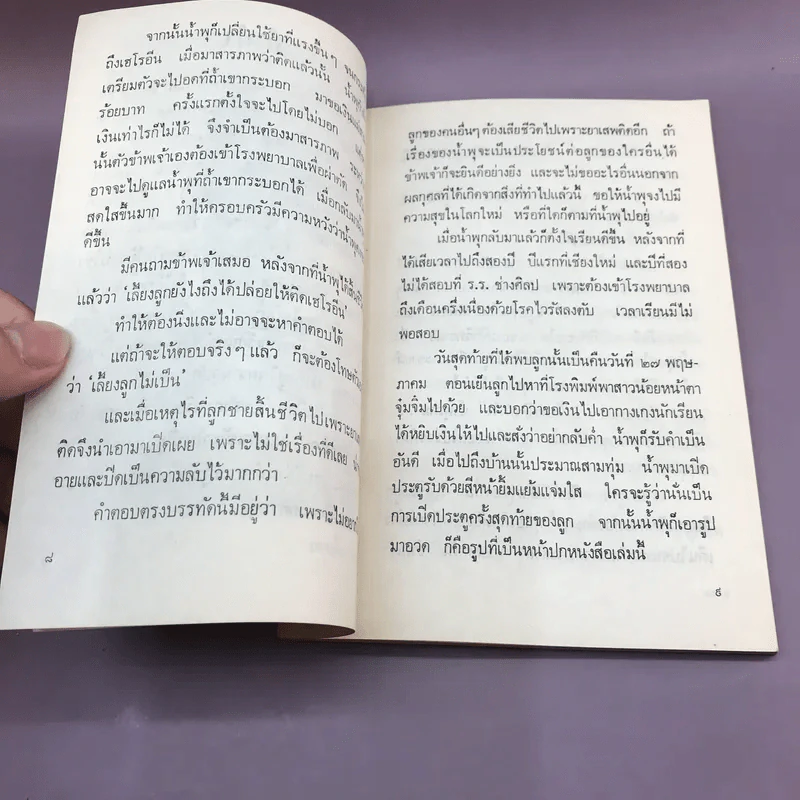 จากนั้นน้ำพุก็เปลี่ยนใช้ยาที่แรงขึ้นๆ
ถึงเฮโรอีน เมื่อมาสารภาพว่าติดแล้วนั้น น้ำพุ
เตรียมตัวจะไปอดที่ถ้ำเขากระบอก มาขอเงิน
ร้อยบาท ครั้งแรกตั้งใจจะไปโดยไม่บอก
เงินเท่าไรก็ไม่ได้ จึงจำเป็นต้องมาสารภาพ
นั้นตัวข้าพเจ้าเองต้องเข้าโรงพยาบาลเพื่อผ่าตัด
อาจจะไปดูแลน้ำพุที่ถ้ำเขากระบอกได้ เมื่อกลับมา
สดใสขึ้นมาก ทำให้ครอบครัวมีความหวังว่าน้ำพุ
ดีขึ้น
มีคนถามข้าพเจ้าเสมอ หลังจากที่น้ำพุได้
แล้วว่า ‘เลี้ยงลูกยังไงถึงได้ปล่อยให้ติดเฮโรอีน’
ทำให้ต้องนิ่งและไม่อาจจะหาคำตอบได้
แต่ถ้าจะให้ตอบจริงๆ แล้ว ก็จะต้องโทษ
ว่า ‘เลี้ยงลูกไม่เป็น’
และเมื่อเหตุไรที่ลูกชายสิ้นชีวิตไปเพราะยา
ติดจึงนำเอามาเปิดเผย เพราะไม่ใช่เรื่องที่ดีเลย
อายและปิดเป็นความลับไว้มากกว่า
คำตอบตรงบรรทัดนี้มีอยู่ว่า เพราะไม่อยาก
๘
ลูกของคนอื่นๆ ต้องเสียชีวิตไปเพราะยาเสพติดอีก ถ้า
เรื่องของน้ำพุจะเป็นประโยชน์ต่อลูกของใครอื่นได้
ข้าพเจ้าก็จะยินดีอย่างยิ่ง และจะไม่ขออะไรอื่นนอกจาก
ผลกุศลที่ได้เกิดจากสิ่งที่ทำไปแล้วนี้ ขอให้น้ำพุจงไปมี
ความสุขในโลกใหม่ หรือที่ใดก็ตามที่น้ำพุไปอยู่
เมื่อน้ำพุกลับมาแล้วก็ตั้งใจเรียนดีขึ้น หลังจากที่
ได้เสียเวลาไปถึงสองปี ปีแรกที่เชียงใหม่ และปีที่สอง
ไม่ได้สอบที่ ร.ร. ช่างศิลป เพราะต้องเข้าโรงพยาบาล
ถึงเดือนครึ่งเนื่องด้วยโรคไวรัสลงตับ เวลาเรียนมีไม่
พอสอบ
วันสุดท้ายที่ได้พบลูกนั้นเป็นคืนวันที่ ๒๗ พฤษ-
ภาคม ตอนเย็นลูกไปหาที่โรงพิมพ์พาสาวน้อยหน้าตา
จุ๋มจิ๋มไปด้วย และบอกว่าขอเงินไปเอากางเกงนักเรียน
ได้หยิบเงินให้ไปและสั่งว่าอย่ากลับค่ำ น้ำพุก็รับคำเป็น
อันดี เมื่อไปถึงบ้านนั้นประมาณสามทุ่ม น้ำพุมาเปิด
ประตูรับด้วยสีหน้ายิ้มแย้มแจ่มใส ใครจะรู้ว่านั่นเป็น
การเปิดประตูครั้งสุดท้ายของลูก จากนั้นน้ำพุก็เอารูป
มาอวด ก็คือรูปที่เป็นหน้าปกหนังสือเล่มนี้
๙